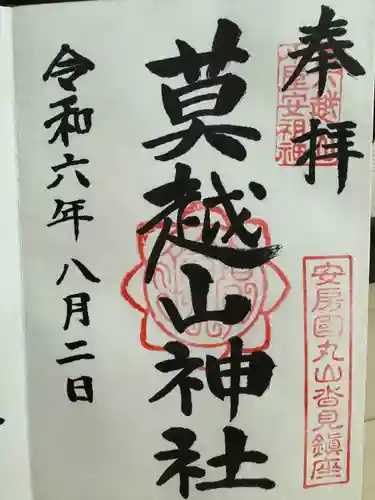 奉拝
安房国丸山沓見鎮座
莫越山神社
令和六年八月二日